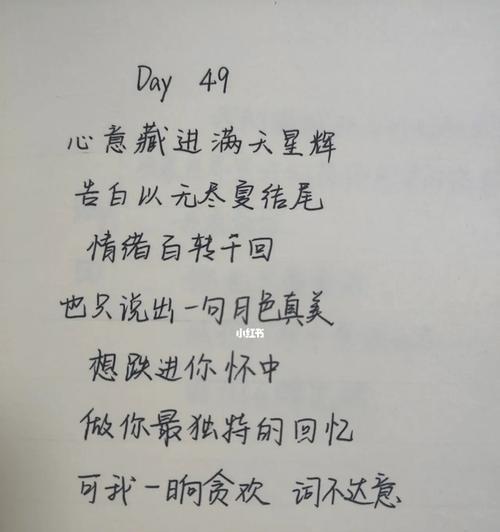 Day 49
心意藏进满天星辉
告白以无尽夏结尾
情绪百转千回
也只说出一句月色真美
小红书
想跌进你怀中
做你最独特的回忆
可我一晌贪欢 词不达意